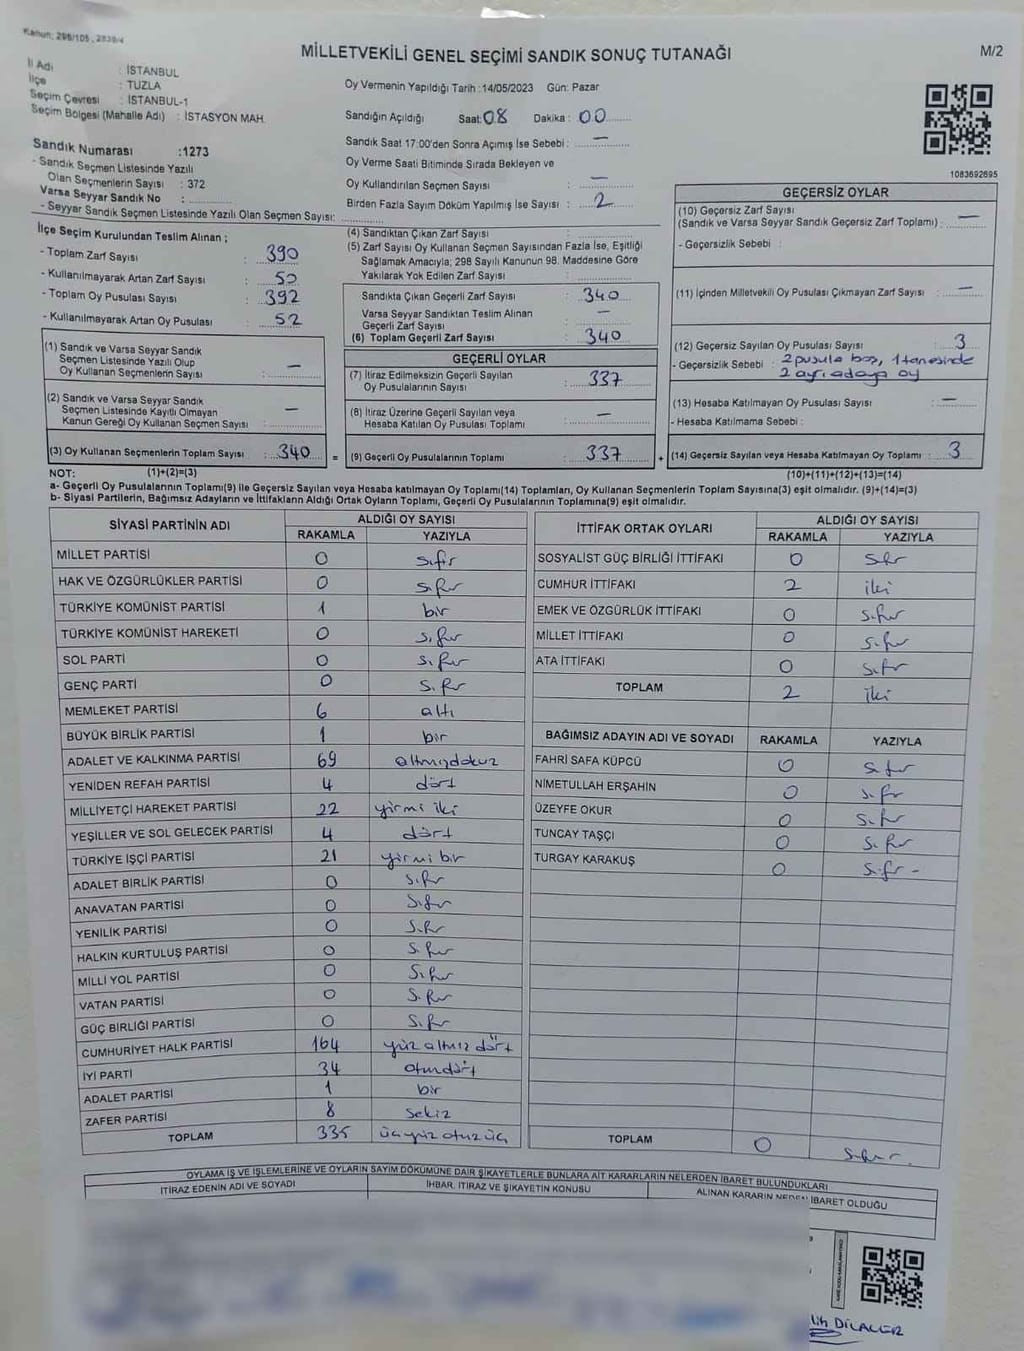 Kanun: 298/105, 2839/4
MİLLETVEKİLİ GENEL SEÇİMİ SANDIK SONUÇ TUTANAĞI
M/2
İl Adı : İSTANBUL
İlçe : TUZLA
Seçim Çevresi : İSTANBUL-1
Seçim Bölgesi (Mahalle Adı) : İSTASYON MAH.
Sandık Numarası :1273
- Sandık Seçmen Listesinde Yazılı
Olan Seçmenlerin Sayısı : 372
Varsa Seyyar Sandık No :
- Seyyar Sandık Seçmen Listesinde Yazılı Olan Seçmen Sayısı:
Oy Vermenin Yapıldığı Tarih :14/05/2023 Gün: Pazar
Sandığın Açıldığı Saat: 08 Dakika : 00
Sandık Saat 17:00'den Sonra Açımış İse Sebebi : —
Oy Verme Saati Bitiminde Sırada Bekleyen ve
Oy Kullandırılan Seçmen Sayısı : —
Birden Fazla Sayım Döküm Yapılmış İse Sayısı : 2
1083692695
İlçe Seçim Kurulundan Teslim Alınan ;
- Toplam Zarf Sayısı : 390
- Kullanılmayarak Artan Zarf Sayısı : 50
- Toplam Oy Pusulası Sayısı : 392
- Kullanılmayarak Artan Oy Pusulası : 52
(1) Sandık ve Varsa Seyyar Sandık
Seçmen Listesinde Yazılı Olup
Oy Kullanan Seçmenlerin Sayısı : —
(2) Sandık ve Varsa Seyyar Sandık
Seçmen Listesinde Kayıtlı Olmayan
Kanun Gereği Oy Kullanan Seçmen Sayısı : —
(3) Oy Kullanan Seçmenlerin Toplam Sayısı : 340 =
(4) Sandıktan Çıkan Zarf Sayısı :
(5) Zarf Sayısı Oy Kullanan Seçmen Sayısından Fazla İse, Eşitliği
Sağlamak Amacıyla; 298 Sayılı Kanunun 98. Maddesine Göre
Yakılarak Yok Edilen Zarf Sayısı :
Sandıkta Çıkan Geçerli Zarf Sayısı : 340
Varsa Seyyar Sandıktan Teslim Alınan
Geçerli Zarf Sayısı : —
(6) Toplam Geçerli Zarf Sayısı : 340
GEÇERLİ OYLAR
(7) İtiraz Edilmeksizin Geçerli Sayılan
Oy Pusulalarının Sayısı : 337
(8) İtiraz Üzerine Geçerli Sayılan veya
Hesaba Katılan Oy Pusulası Toplamı : —
(9) Geçerli Oy Pusulalarının Toplamı : 337 +
GEÇERSİZ OYLAR
(10) Geçersiz Zarf Sayısı
(Sandık ve Varsa Seyyar Sandık Geçersiz Zarf Toplamı) : —
- Geçersizlik Sebebi :
(11) İçinden Milletvekili Oy Pusulası Çıkmayan Zarf Sayısı : —
(12) Geçersiz Sayılan Oy Pusulası Sayısı : 3
- Geçersizlik Sebebi : 2 pusula boş, 1 tanesinde
2 ayrı adaya oy
(13) Hesaba Katılmayan Oy Pusulası Sayısı : —
- Hesaba Katılmama Sebebi :
(14) Geçersiz Sayılan veya Hesaba katılmayan Oy Toplamı : 3
NOT: (1)+(2)=(3) (10)+(11)+(12)+(13)=(14)
a- Geçerli Oy Pusulalarının Toplamı(9) İle Geçersiz Sayılan veya Hesaba katılmayan Oy Toplamı(14) Toplamları, Oy Kullanan Seçmenlerin Toplam Sayısına(3) eşit olmalıdır. (9)+(14)=(3)
b- Siyasi Partilerin, Bağımsız Adayların ve İttifakların Aldığı Ortak Oyların Toplamı, Geçerli Oy Pusulalarının Toplamına(9) eşit olmalıdır.
SİYASİ PARTİNİN ADI ALDIĞI OY SAYISI
RAKAMLA YAZIYLA
MİLLET PARTİSİ 0 sıfır
HAK VE ÖZGÜRLÜKLER PARTİSİ 0 sıfır
TÜRKİYE KOMÜNİST PARTİSİ 1 bir
TÜRKİYE KOMÜNİST HAREKETİ 0 sıfır
SOL PARTİ 0 sıfır
GENÇ PARTİ 0 sıfır
MEMLEKET PARTİSİ 6 altı
BÜYÜK BİRLİK PARTİSİ 1 bir
ADALET VE KALKINMA PARTİSİ 69 altmışdokuz
YENİDEN REFAH PARTİSİ 4 dört
MİLLİYETÇİ HAREKET PARTİSİ 22 yirmi iki
YEŞİLLER VE SOL GELECEK PARTİSİ 4 dört
TÜRKİYE İŞÇİ PARTİSİ 21 yirmi bir
ADALET BİRLİK PARTİSİ 0 sıfır
ANAVATAN PARTİSİ 0 sıfır
YENİLİK PARTİSİ 0 sıfır
HALKIN KURTULUŞ PARTİSİ 0 sıfır
MİLLİ YOL PARTİSİ 0 sıfır
VATAN PARTİSİ 0 sıfır
GÜÇ BİRLİĞİ PARTİSİ 0 sıfır
CUMHURİYET HALK PARTİSİ 164 yüz altmış dört
İYİ PARTİ 34 otuzdört
ADALET PARTİSİ 1 bir
ZAFER PARTİSİ 8 sekiz
TOPLAM 335 üçyüz otuz üç
İTTİFAK ORTAK OYLARI ALDIĞI OY SAYISI
RAKAMLA YAZIYLA
SOSYALİST GÜÇ BİRLİĞİ İTTİFAKI 0 sıfır
CUMHUR İTTİFAKI 2 iki
EMEK VE ÖZGÜRLÜK İTTİFAKI 0 sıfır
MİLLET İTTİFAKI 0 sıfır
ATA İTTİFAKI 0 sıfır
TOPLAM 2 iki
BAĞIMSIZ ADAYIN ADI VE SOYADI RAKAMLA YAZIYLA
FAHRİ SAFA KÜPCÜ 0 sıfır
NİMETULLAH ERŞAHİN 0 sıfır
ÜZEYFE OKUR 0 sıfır
TUNCAY TAŞÇI 0 sıfır
TURGAY KARAKUŞ 0 sıfır -
TOPLAM 0 sıfır.
OYLAMA İŞ VE İŞLEMLERİNE VE OYLARIN SAYIM DÖKÜMÜNE DAİR ŞİKAYETLERLE BUNLARA AİT KARARLARIN NELERDEN İBARET BULUNDUKLARI
İTİRAZ EDENİN ADI VE SOYADI İHBAR, İTİRAZ VE ŞİKAYETİN KONUSU ALINAN KARARIN NEDEN İBARET OLDUĞU
DİLALER